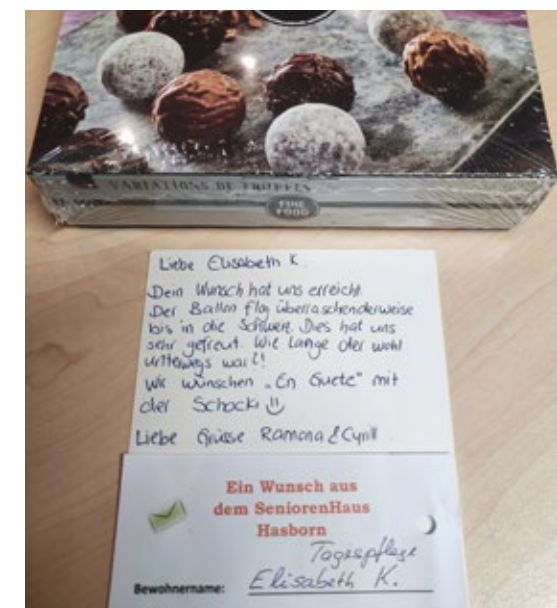 VARIATIONS DE TRUFFES
FINE
FOOD
Liebe Elisabeth K.
Dein Wunsch hat uns erreicht.
Der Ballon flog überraschenderweise
bis in die Schweiz. Dies hat uns
sehr gefreut. Wie lange der wohl
unterwegs war?!
Wir wünschen "En Guete" mit
der Schoki
Liebe Grüsse Ramona & Cyrill
Ein Wunsch aus
dem SeniorenHaus
Hasborn
Tagespflege
Bewohnername: Elisabeth K.